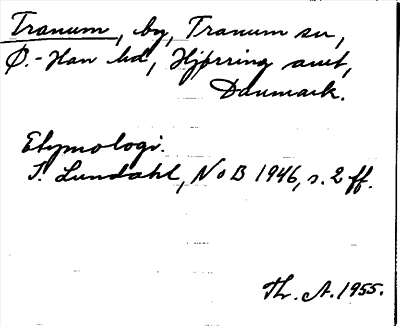 Tranum, by, Tranum sn,
Ø.-Han hd, Hjørring amt,
Danmark.
Etymologi.
I. Lundahl, NoB 1946, s. 2 ff.
Th. A. 1955.